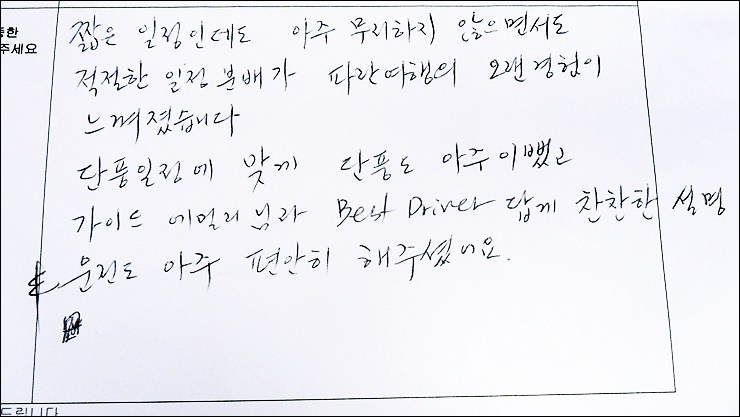 중한
주세요
짧은 일정인데도 아주 무리하지 않으면서도
적절한 일정 분배가 파란여행의 오랜경험이
느껴졌습니다
단풍일정에 맞게 단풍도 아주이뻤고
가이드 에밀리님과 Best Driver 답게 찬찬한 설명
& 운전도 아주 편안히 해주셨어요.
드립니다